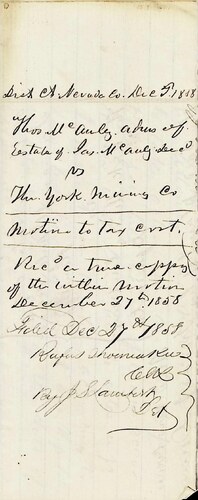 Dist Ct Nevada Co. Dec 5th 1858
Thos McAuly. Admr of
Eestate of Jas. McAuly Decd
vs
The York Mining Co
Motion to tax cost.
Recd a true coppy
of the within motion
December 27th 1858
Filed Dec 27th 1858
Rufus Shoemaker
Clk
By J